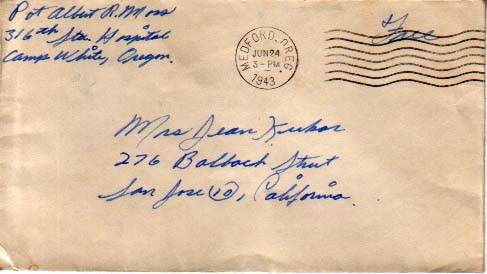 Pvt Albert R. Moss
316th Sta. Hospital
Camp White, Oregon.
MEDFORD, OREG.
JUN 24
3-PM
1943
Free
Mrs Jean
276 Balbach Street
San Jose (10), California.